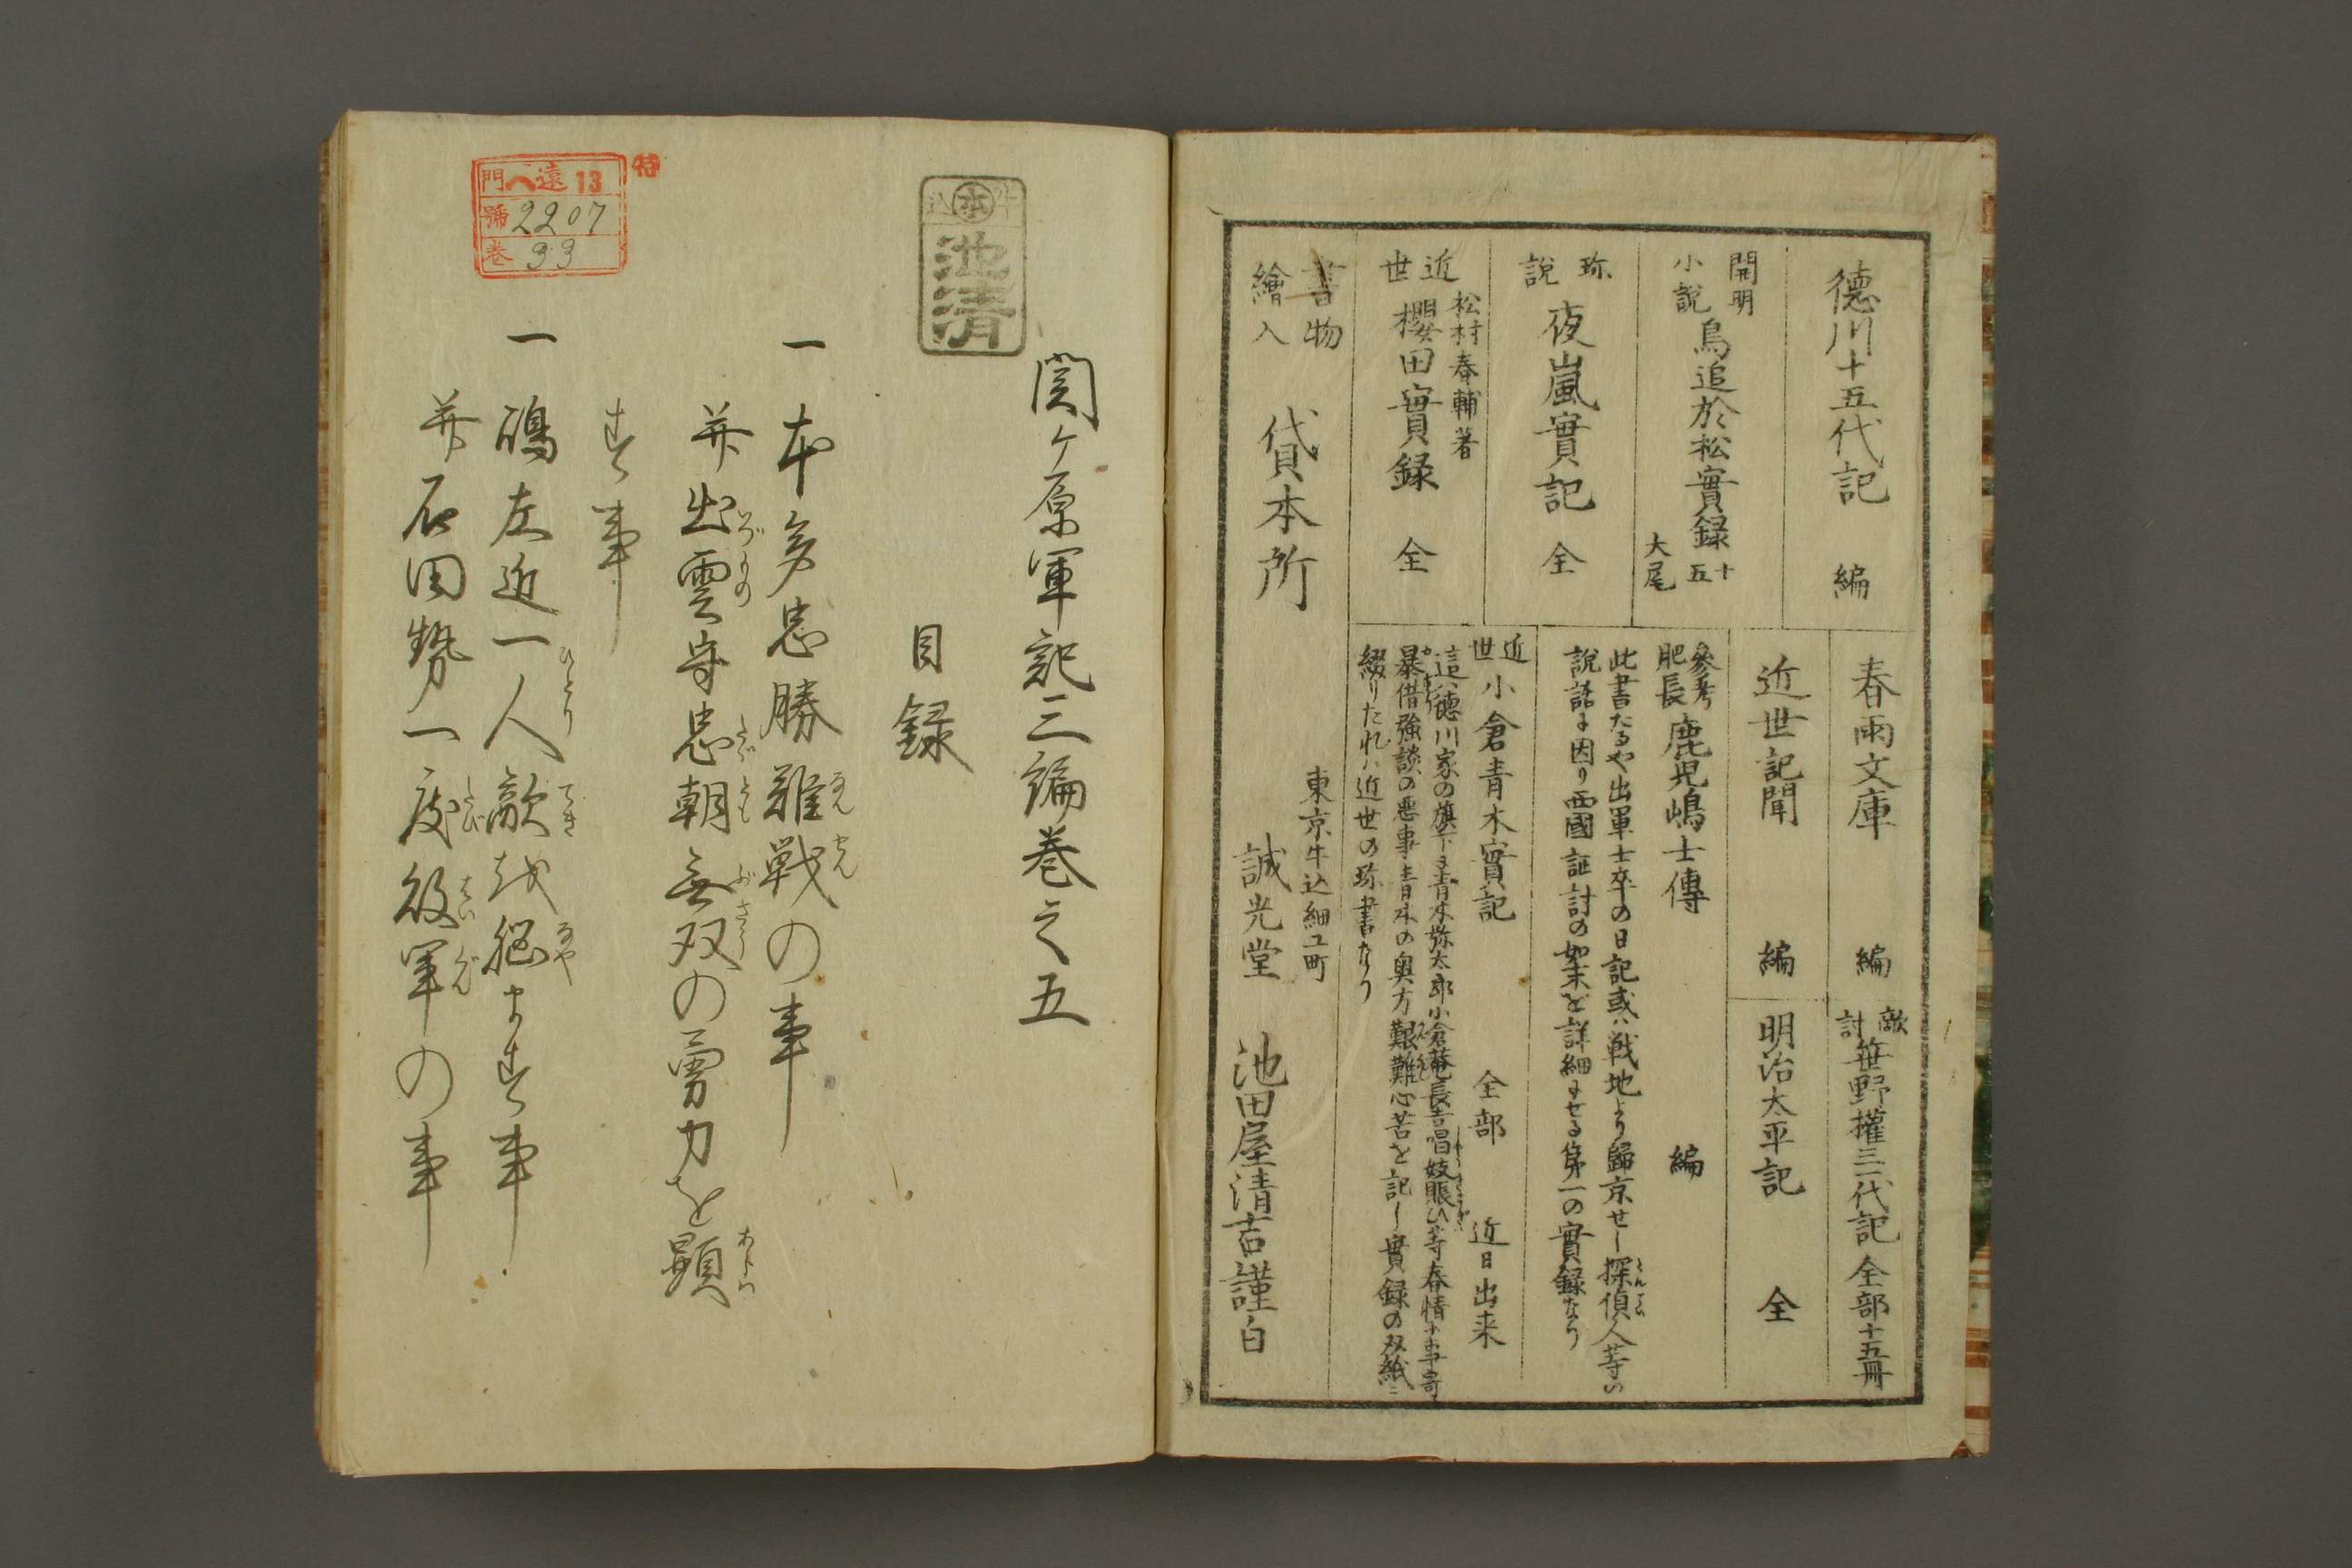 徳川十五代記 編
開明小説 鳥追於松實録 十五大尾
珎説 夜嵐實記 全
近世 櫻田實録 全
松村春輔著
春雨文庫 編
近世記聞 編
敵討 笹野權三代記 全部十五冊
明治太平記 全
參考肥長 鹿児嶋士傳 編
此書たるや出軍士卒の日記或ハ戦地より歸京せし探偵人等の
説話に因り西國証討の如末を詳細にせる第一の實録なり
近世 小倉青木實記 全部 近日出来
這ハ徳川家の旗下青木弥太郎小倉菴長吉唱妓賑ひ等春情に事寄
暴借強談の悪事青木の奥方艱難心苦を記し實録の双紙ニ
綴りたれハ近世の珎書なり
書物繪入 貸本所
東京牛込細工町
誠光堂 池田屋清吉謹白
牛込 本
池清
関ヶ原軍記三編巻之五
目録
一 本多忠勝難戦の事
并出雲守忠朝無双の勇力を顕
す事
一 嶋左近一人敵を悩ます事
并石田勢一度敗軍の事
特
門 へ遠13
號 2207
巻 93